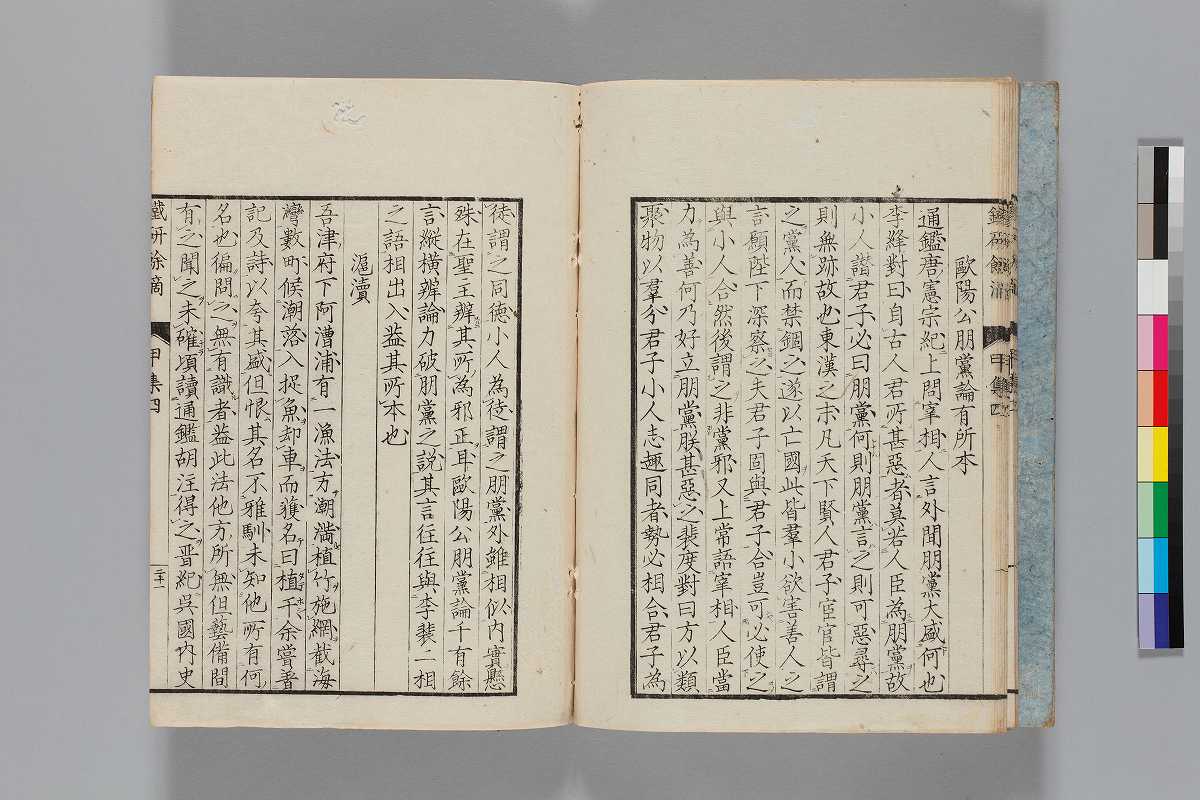 歐陽公朋黨論有所本
通鑑唐憲宗紀上問宰相人言外間朋黨大盛何也
李絳對曰自古人君所甚惡者莫若人臣為朋黨故
小人譖君子必曰朋黨何則朋黨言之則可惡尋之
則無跡故也東漢之末凡天下賢人君子宦官皆謂
之黨人而禁錮之遂以亡國此皆羣小欲害善人之
言願陛下深察之夫君子固與君子合豈可必使之
與小人合然後謂之非黨邪又上常語宰相人臣當
力為善何乃好立朋黨朕甚惡之裴度對曰方以類
聚物以羣分君子小人志趣同者勢必相合君子為
徒謂之同徳小人為徒謂之朋黨外雖相似内實懸
殊在聖主辨其所為邪正耳歐陽公朋黨論千有餘
言縱橫辨論力破朋黨之説其言往往與李裴二相
之語相出入益其所本也
滬瀆
吾津府下阿漕浦有一漁法方潮滿植竹施網截海
灣數町候潮落入捉魚却車而獲名曰植干余嘗著
記及詩以夸其盛但恨其名不雅馴未知他所有何
名也徧問之無有識者益此法他方所無但藝備間
有之聞之未確頃讀通鑑胡注得之晋紀吳國内史
鐵研餘滴 甲集四 二十二